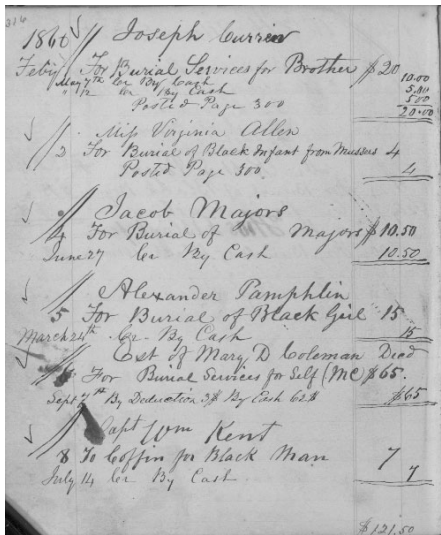 316
1860 Joseph Currin
Feby 1 For Burial Services for Brother $20
May 7th Cr By Cash 10.00
" 12 Cr By Cash 5.00
5.00
Posted Page 300 20.00
Miss Virginia Allen
2 For Burial of Black Infant from 4
Posted Page 300 4
Jacob Majors
4 For Burial of Majors $10.50
June 27 Cr By Cash 10.50
Alexander Pamphlin
5 For Burial of Black Girl 15
March 24th Cr By Cash 15
Est of Mary D Coleman Died
For Burial Services for Self (MC) $65.
Sept 7th By Deduction 3$ By Cash 62.$ $65
Capt Wm Kent
8 To Coffin for Black Man 7
July 14 Cr By Cash 7
$121.50